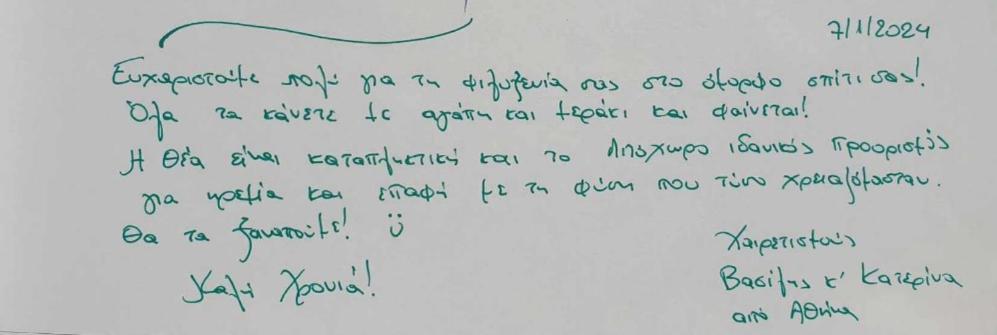 7/1/2024
Ευχαριστούμε πολύ για τη φιλοξενία σας στο όμορφο σπίτι σας!
Όλα τα κάνετε με αγάπη και μεράκι και φαίνεται!
Η θέα είναι καταπληκτική και το Λιπόχωρο ιδανικός προορισμός
για ηρεμία και επαφή με τη φύση που τόσο χρειαζόμασταν.
Θα τα ξαναπούμε! Ü
Χαιρετισμούς
Καλή Χρονιά!
Βασίλης κ' Κατερίνα
από Αθήνα